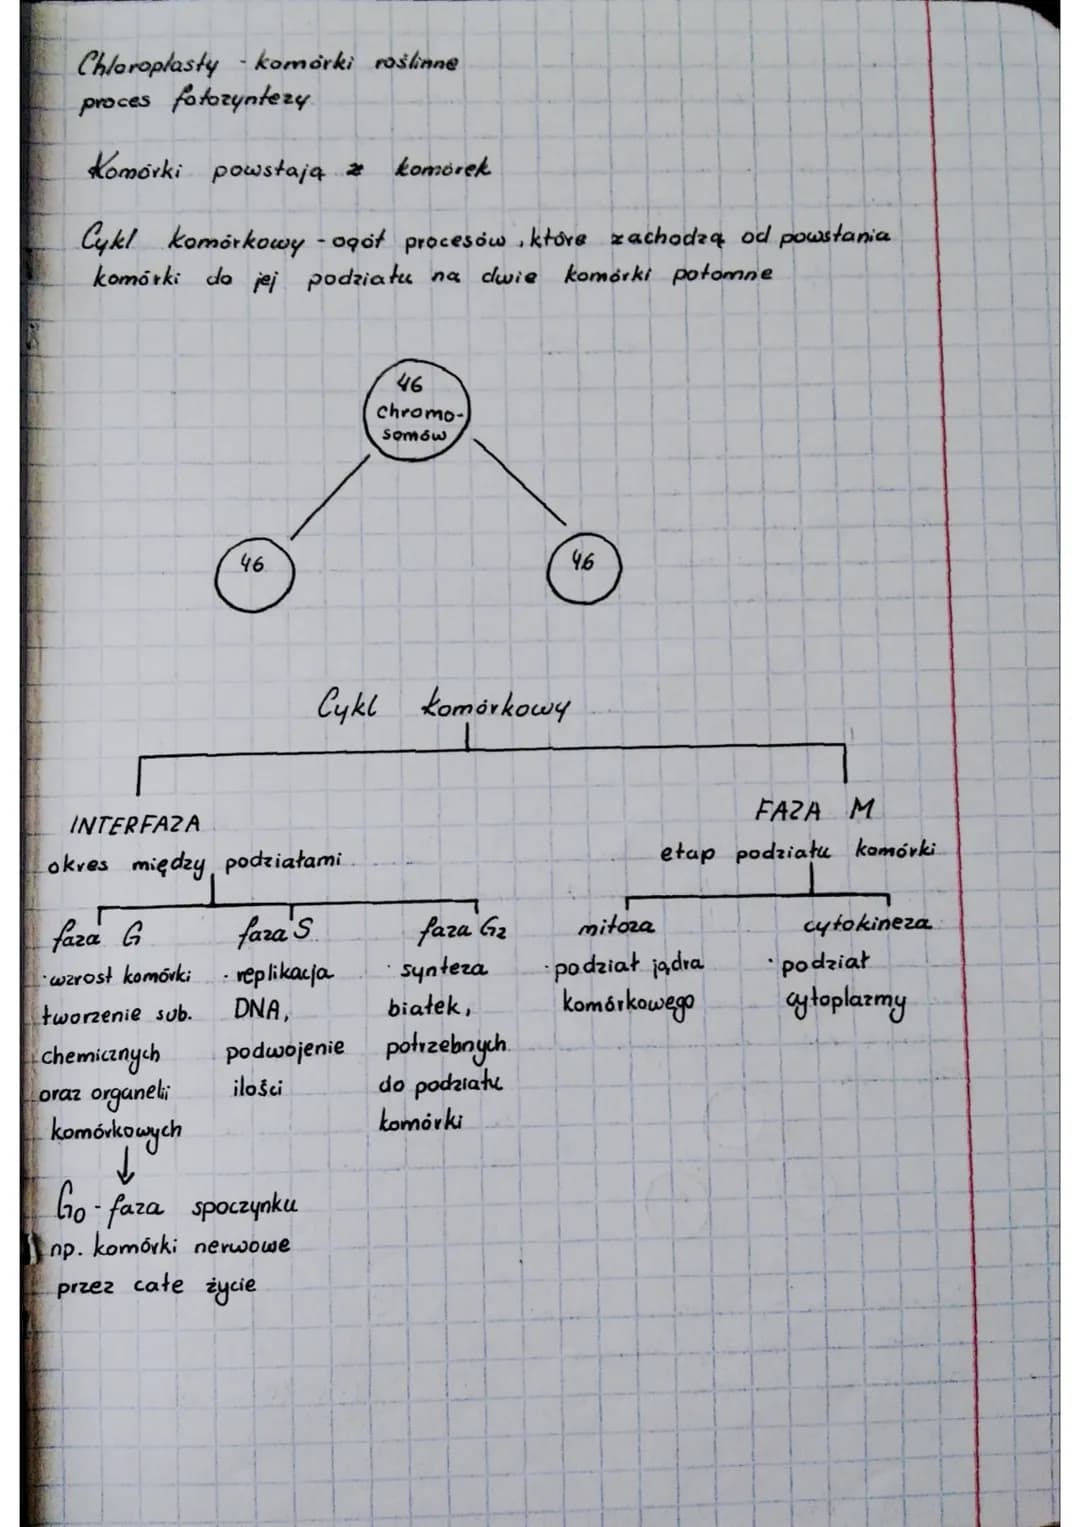 Chloroplasty - komórki roślinne
proces fotozyntezy
Komórki powstają z komórek
Cykl komórkowy - ogół procesów, które zachodzą od powstania
komórki do jej podziału na dwie komórki potomne
46
chromo-
somów
46
46
Cykl komórkowy
INTERFAZA
okres między podziałami
faza G
·wzrost komórki
tworzenie sub.
chemicznych
oraz organelii
komórkowych
↓
G0 - faza spoczynku
np. komórki nerwowe
przez całe życie
faza S
· replikacja
DNA,
podwojenie
ilości
faza G2
· synteza
białek,
potrzebnych
do podziału
komórki
FAZA M
etap podziału komórki
mitoza
· podział jądra
komórkowego
cytokineza
· podział
cytoplazmy